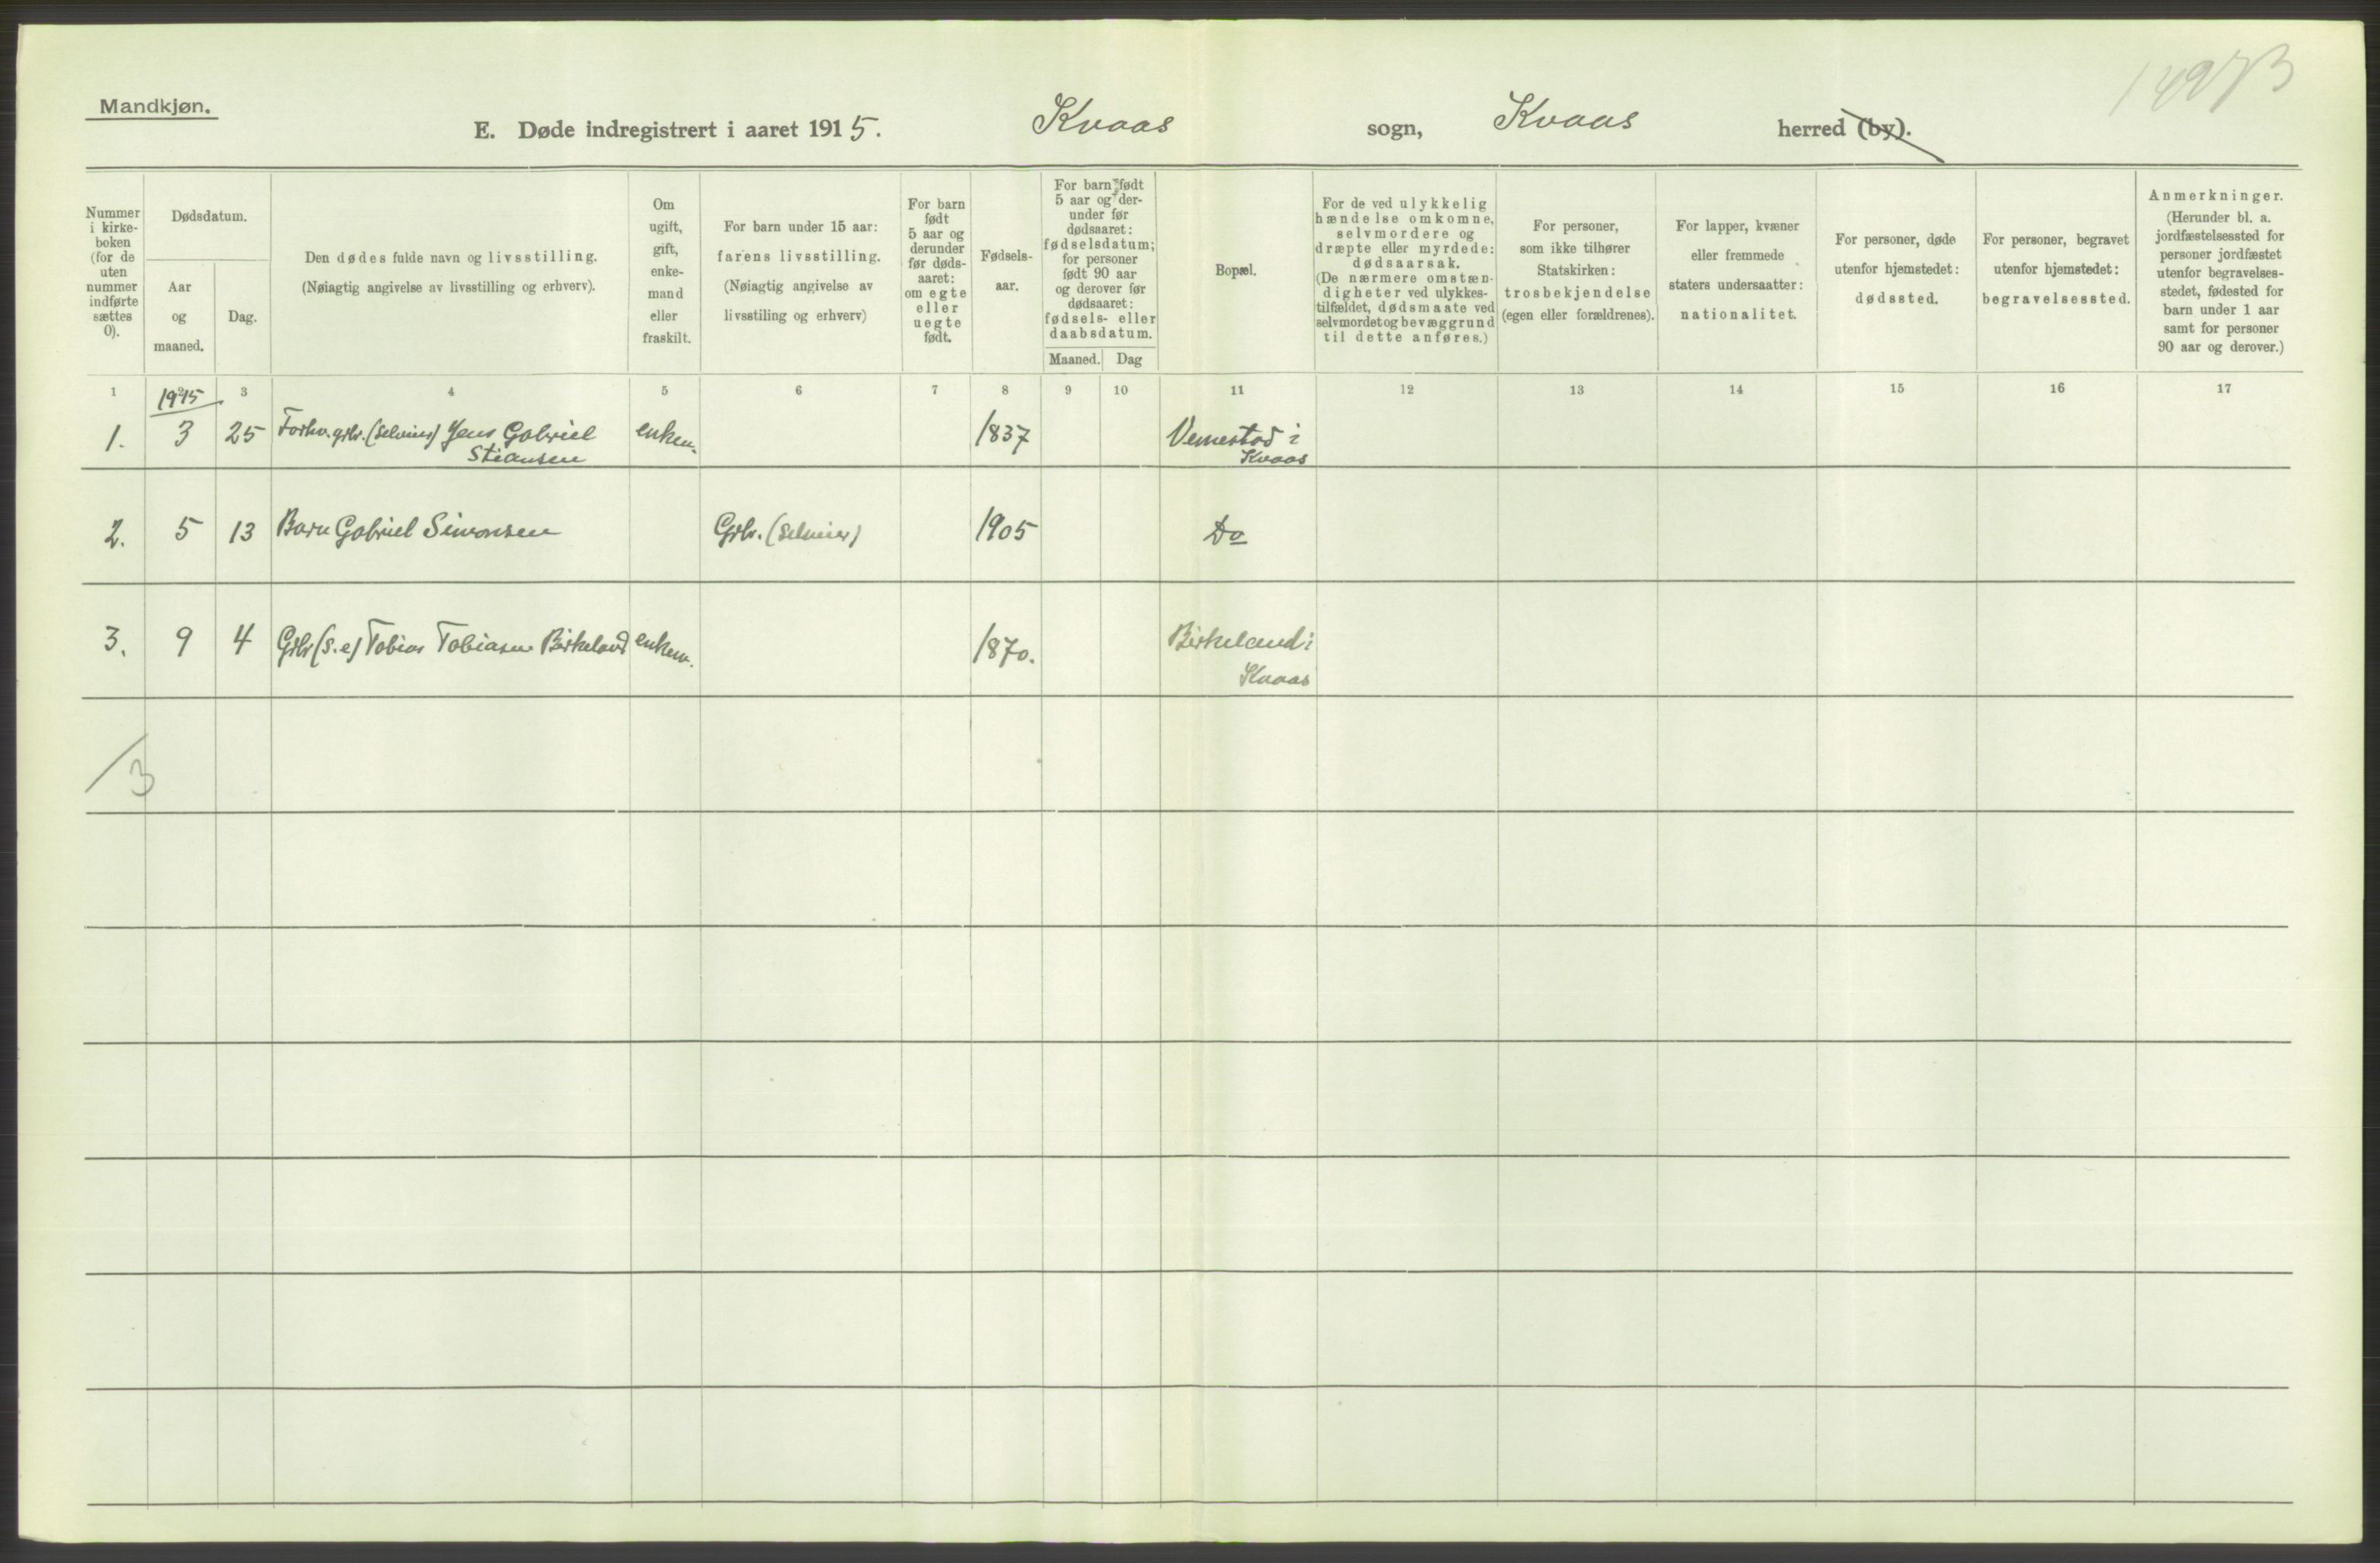 Mandkjøn.
E. Døde indregistrert i aaret 1915. Kvaas sogn, Kvaas herred (by).
Nummer i kirke-boken (for de uten nummer indførte sættes 0).
Dødsdatum.
Aar og maaned.
Dag.
Den dødes fulde navn og livsstilling.
(Nøiagtig angivelse av livsstilling og erhverv).
Om ugift, gift, enke-mand eller fraskilt.
For barn under 15 aar:
farens livsstilling.
(Nøiagtig angivelse av livsstiling og erhverv)
For barn født 5 aar og derunder før døds-aaret: om egte eller uegte født.
Fødsels-aar.
For barn født 5 aar og der-under før dødsaaret: fødselsdatum; for personer født 90 aar og derover før dødsaaret: fødsels- eller daabsdatum.
Maaned. Dag
Bopæl.
For de ved ulykkelig hændelse omkomne, selvmordere og dræpte eller myrdede: dødsaarsak.
(De nærmere omstæn-digheter ved ulykkes-tilfældet, dødsmaate ved selvmordet og bevæggrund til dette anføres.)
For personer, som ikke tilhører Statskirken: trosbekjendelse (egen eller forældrenes).
For lapper, kvæner eller fremmede staters undersaatter: nationalitet.
For personer, døde utenfor hjemstedet: dødssted.
For personer, begravet utenfor hjemstedet: begravelsessted.
Anmerkninger.
(Herunder bl. a. jordfæstelsessted for personer jordfæstet utenfor begravelses-stedet, fødested for barn under 1 aar samt for personer 90 aar og derover.)
1 3 4 5 6 7 8 9 10 11 12 13 14 15 16 17
1915
1. 3 25 Forhv. grbr. (Selveier) Jens Gabriel enkem. 1837
Stiansen Kvaas
2. 5 13 Barn Gabriel Simonsen Grbr. (Selveier) 1905 Do
3. 9 4 Grbr (s.e) Tobias Tobiasen Birkeland enkem. 1870. Birkeland i
Kvaas
/3